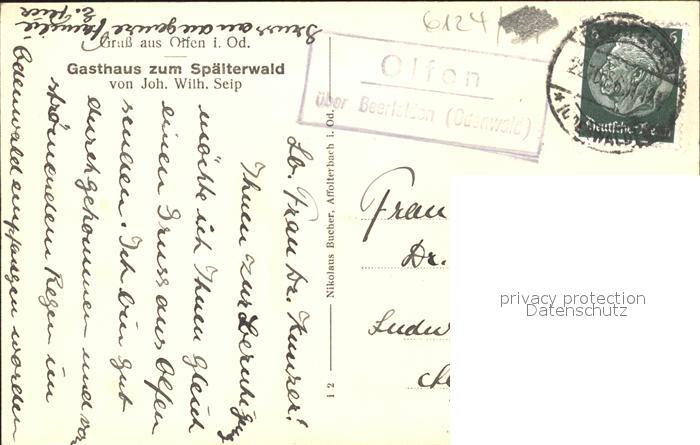 Gruß aus Olfen i. Od.
Gasthaus zum Spälterwald
von Joh. Wilh. Seip
Lb. Frau Dr. Kunzer!
Ihnen zur Beruhigung
möchte ich Ihnen gleich
einen Gruss aus Olfen
senden. Ich bin gut
durchgekommen und von
strömendem Regen im
Odenwald empfangen worden
Familie
Nikolaus Bucher, Affolterbach i. Od.
1 2
6124
Olfen
über Beerfelden (Odenwald)
6
Deutsches Reich
Frau
Dr.
Ludw
privacy protection
Datenschutz